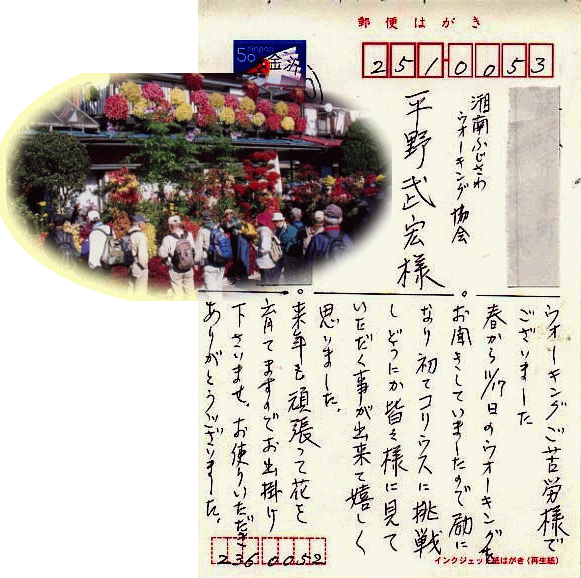 郵便はがき
50
NIPPON
金沢
251-0053
湘南ふじさわ
ウオーキング協会
平野武宏様
ウオーキングご苦労様で
ございました
春から11/17日のウオーキングを
お聞きしていましたので励に
なり初てコリウスに挑戦
しどうにか皆々様に見て
いただく事が出来て嬉しく
思いました。
来年も頑張って花を
育てますのでお出掛け
下さいませ。お便りいただき
ありがとうございました。
2360052
インクジェット紙はがき(再生紙)